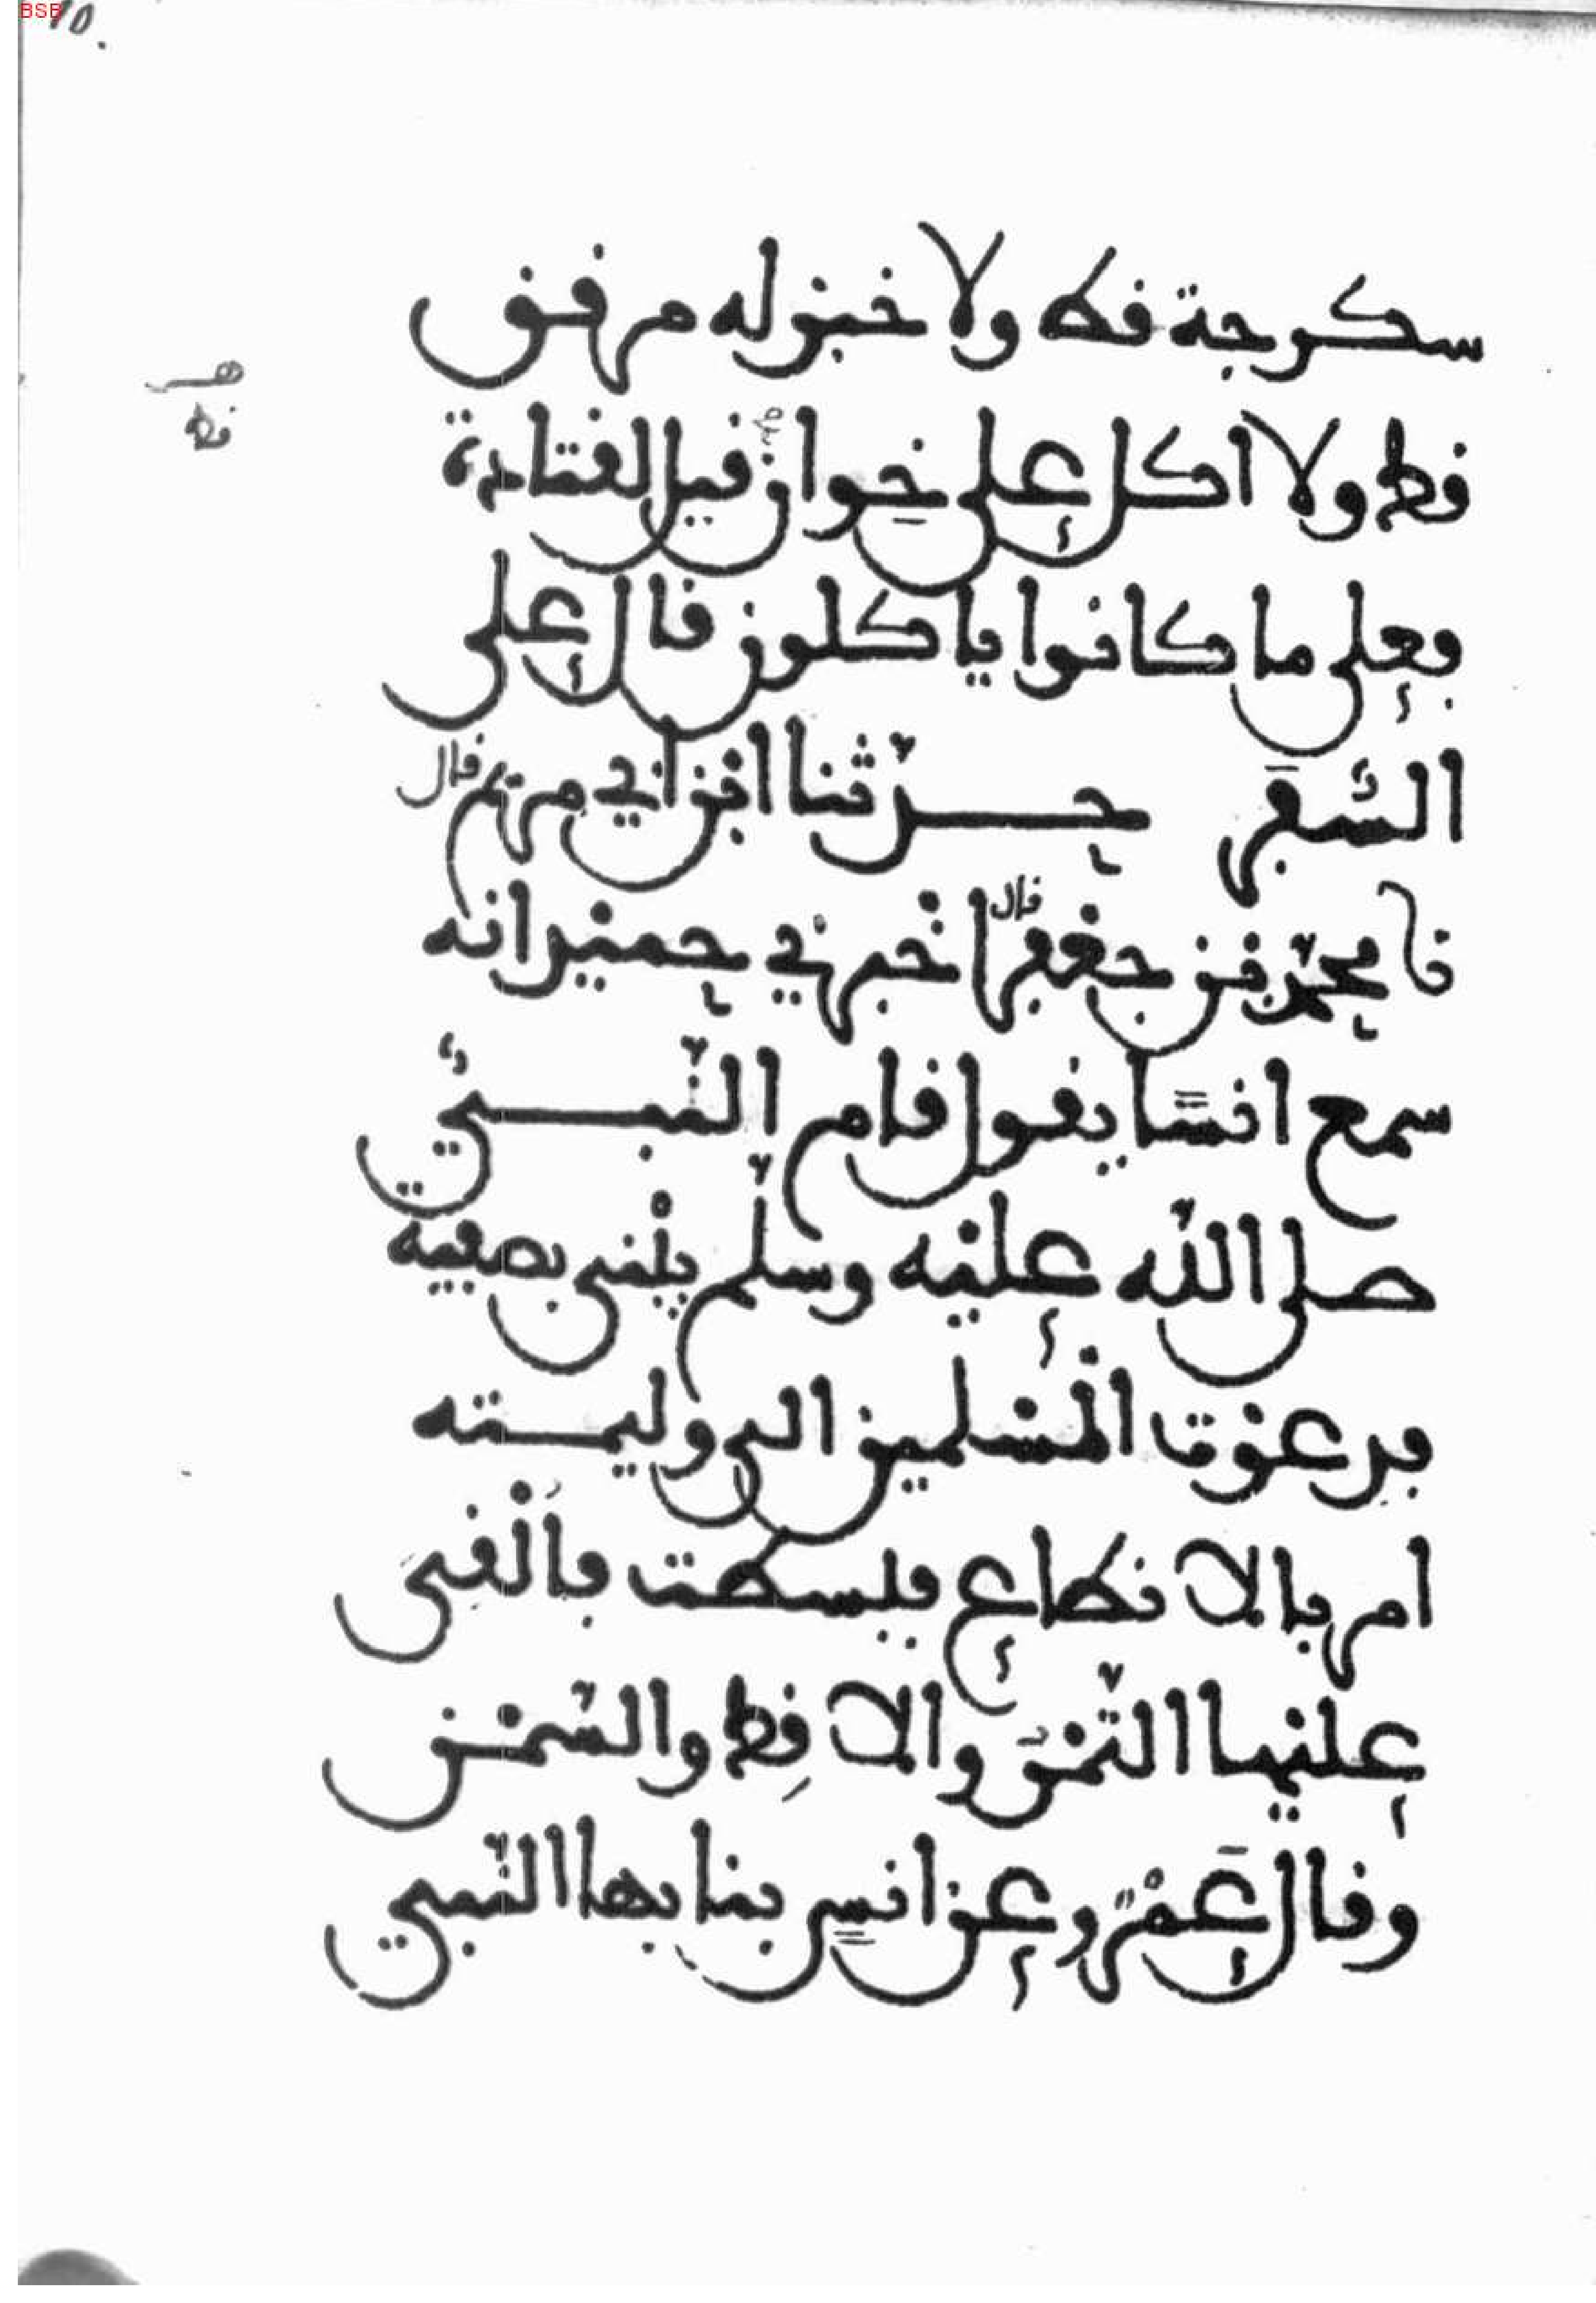 BSB
10.
سكرجة قط ولا خبز له مرقق
قط ولا اكل على خوان قيل لقتادة
فعلى ما كانوا ياكلون قال على
السُّفَر حدّثنا ابْن ابي مريم قال
نا محمّد بْن جعْفر قال اخْبرني حميْد انه
سمع انسًا يقول قام النّبي
صلى اللّه عليْه وسلّم يبْني بصفية
فدعوْت الْمسْلمين الى وليمته
امر بالانطاع فبسطت فأَلْقي
عليْها التّمْر والاقِط والسّمْن
وقال عَمْرو عن انسٍ بنا بها النّبي
قط